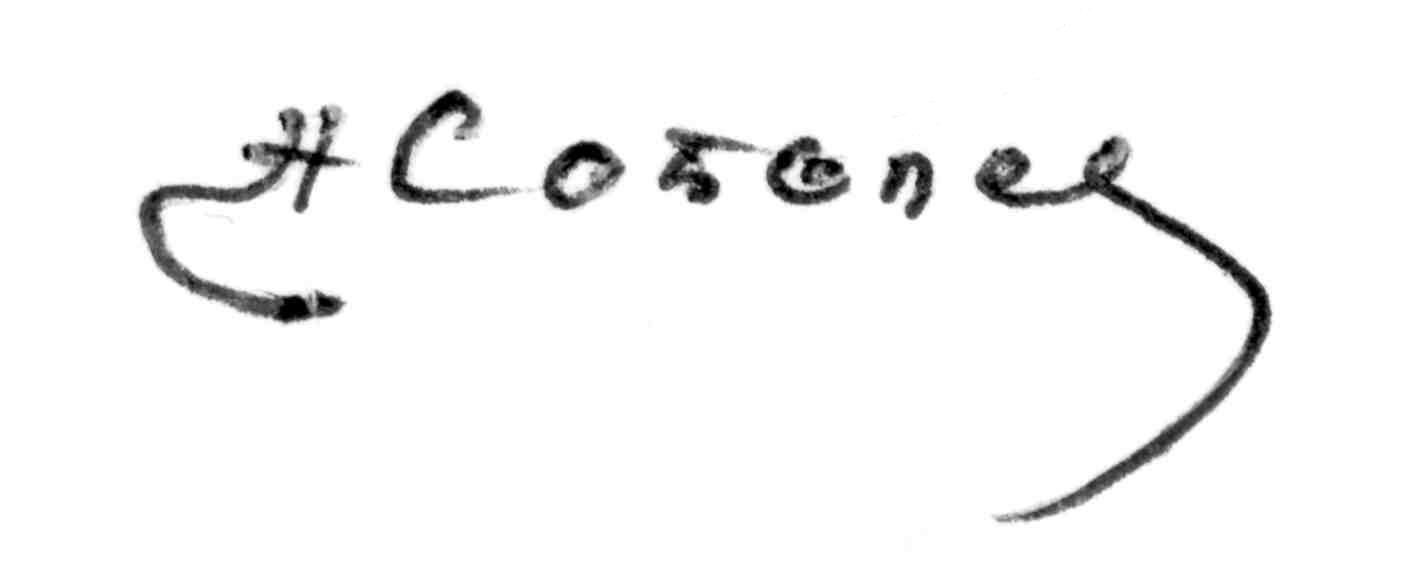 Н Соболев